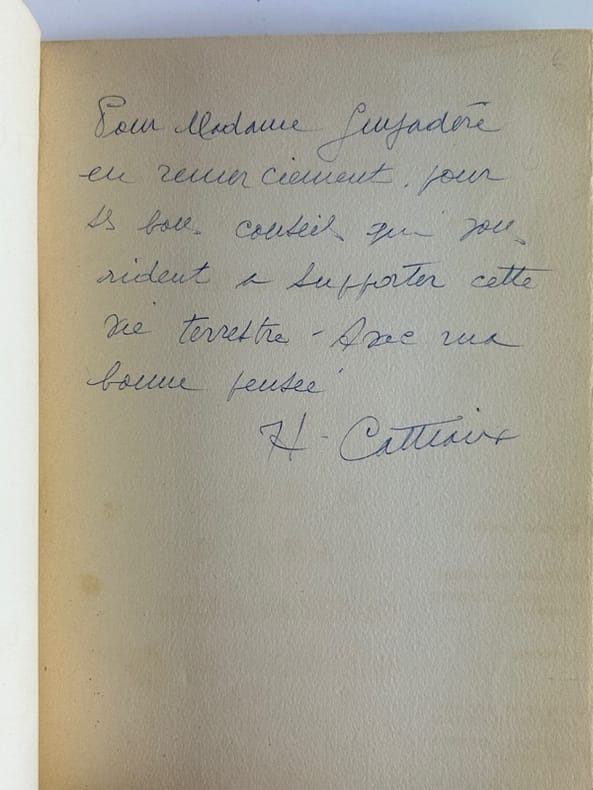 Pour Madame
en remerciement, pour
ses bons conseils qui vous
aident a supporter cette
vie terrestre - Avec ma
bonne pensée
H - Cattiaux